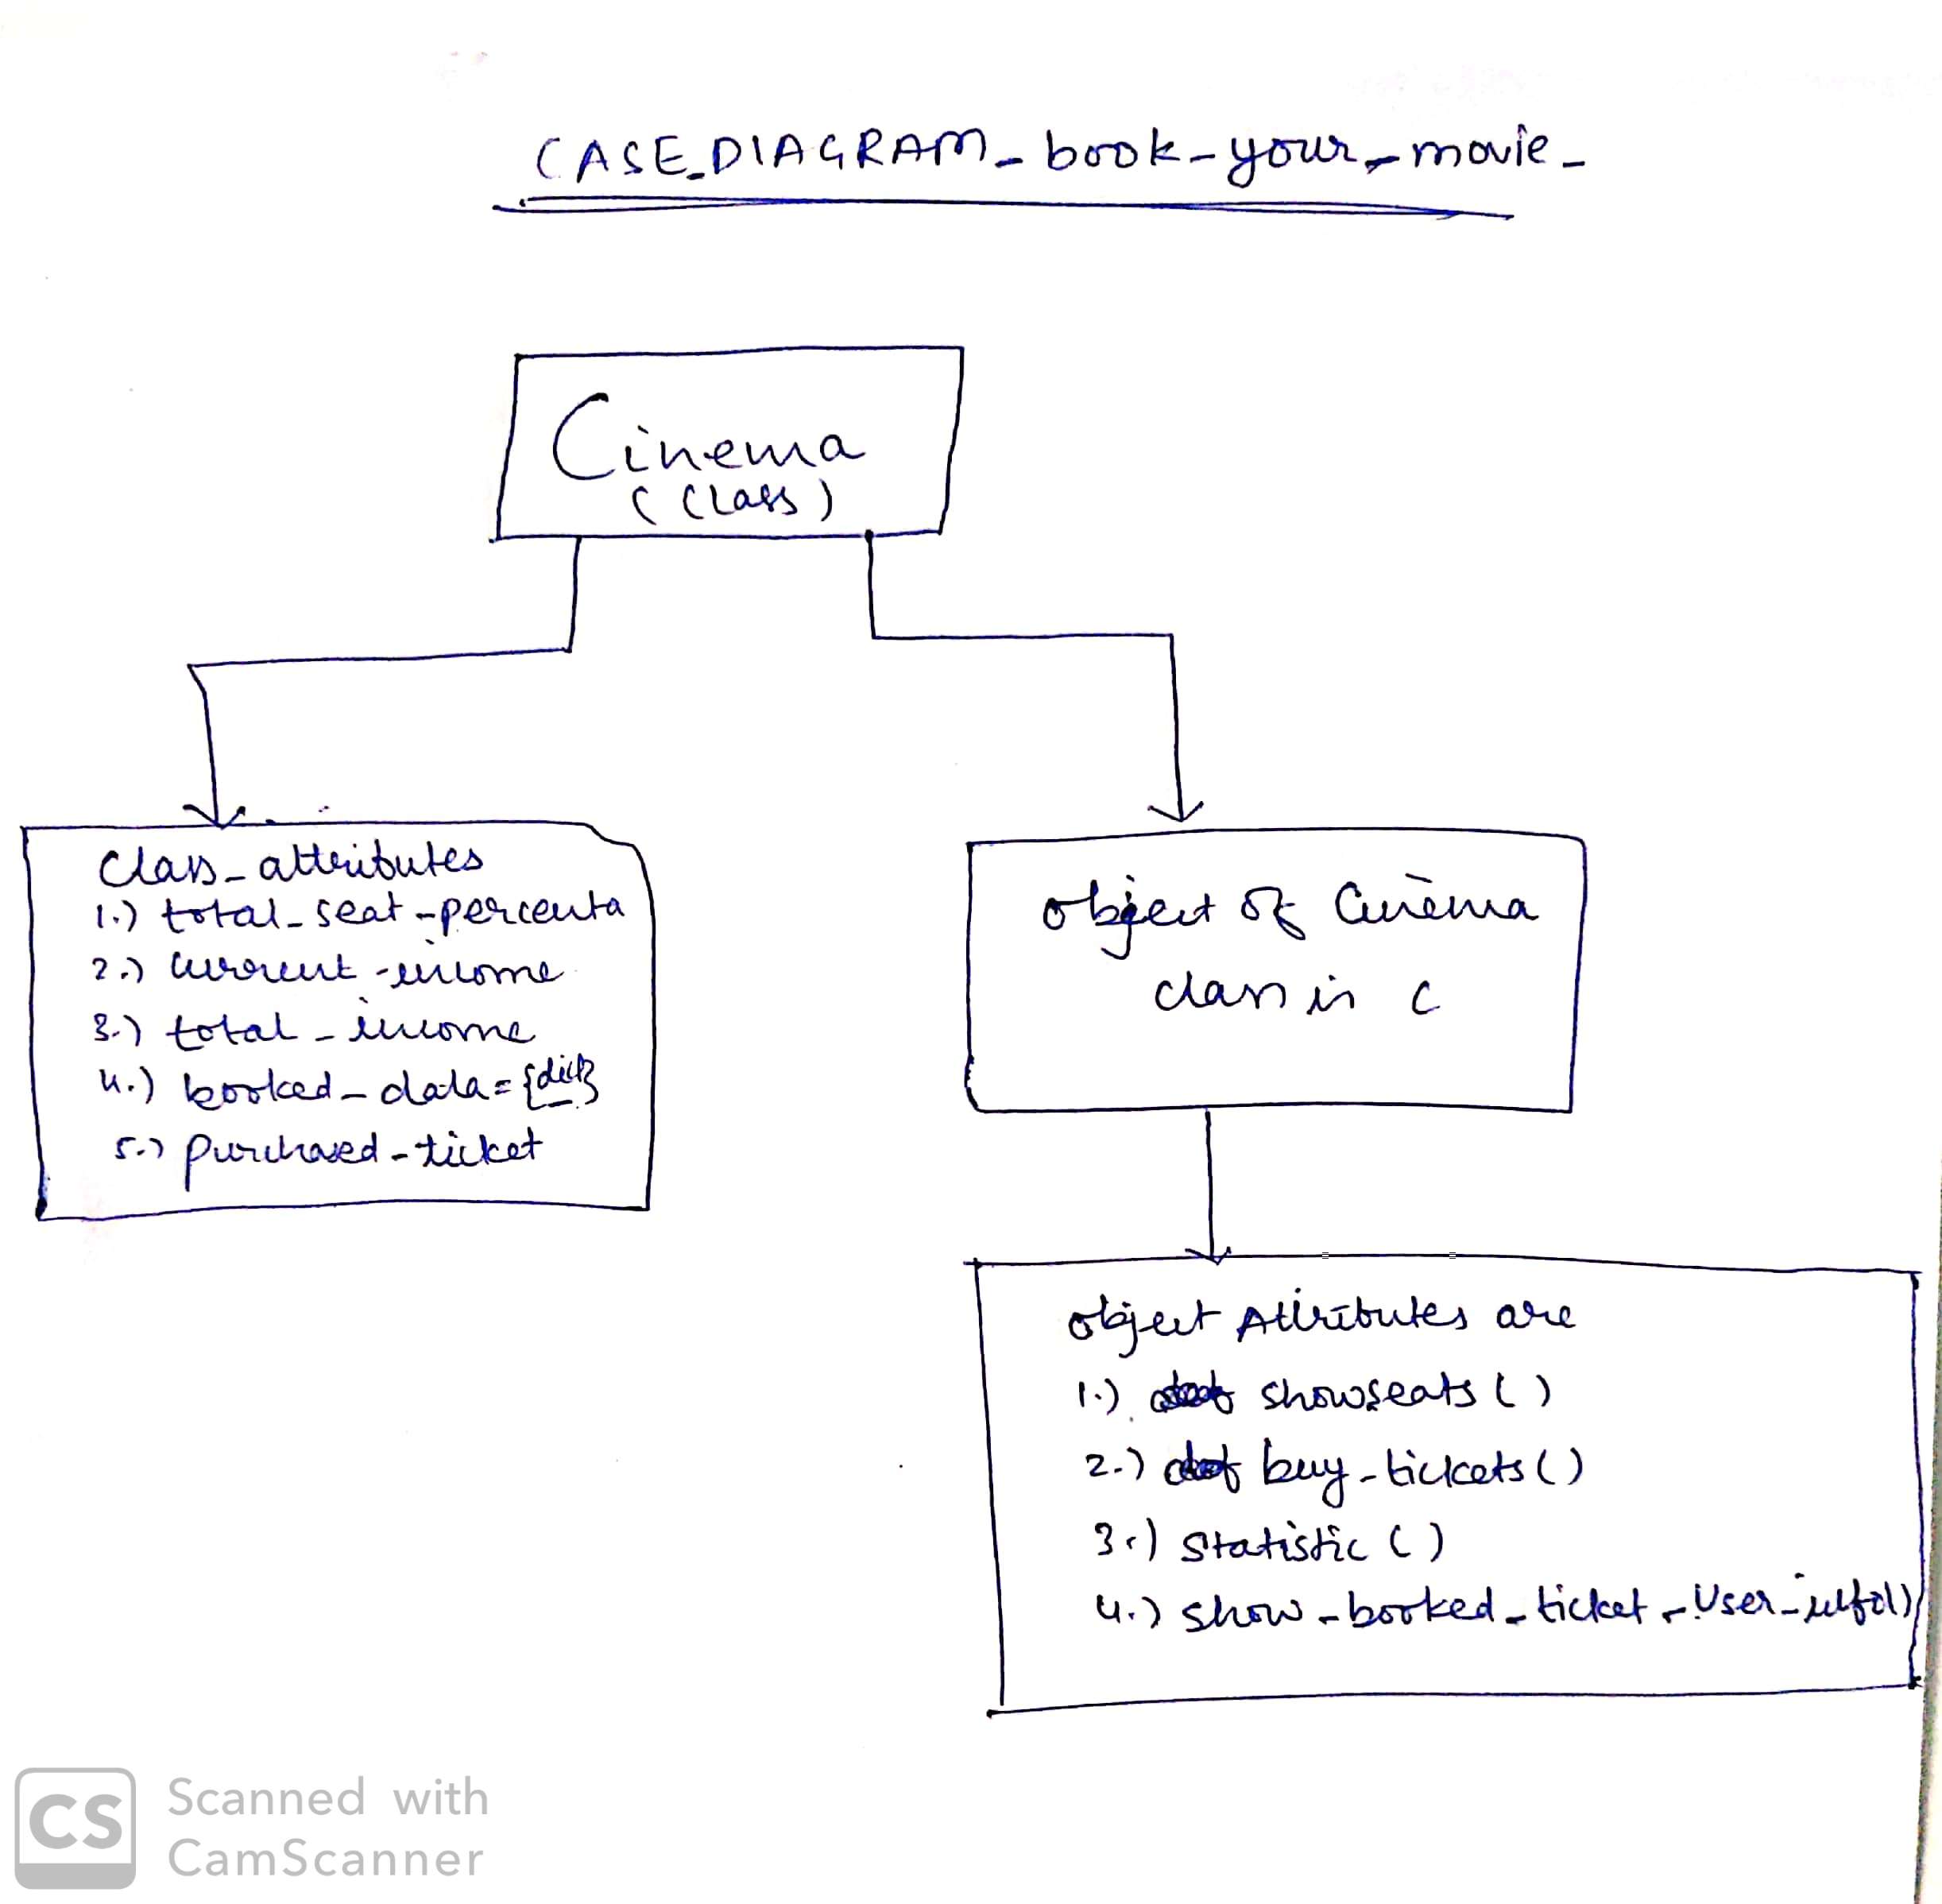 CASE_DIAGRAM_book_your_movie_
Cinema
(Class)
Class_attributes
1.) total_seat_percenta
2.) current_income
3.) total_income
4.) booked_data={dict}
5.) purchased_ticket
object of Cinema
class is c
object Attributes are
1.) showseats()
2.) buy_tickets()
3.) Statistic()
4.) show_booked_ticket_User_info()
CS
Scanned with
CamScanner